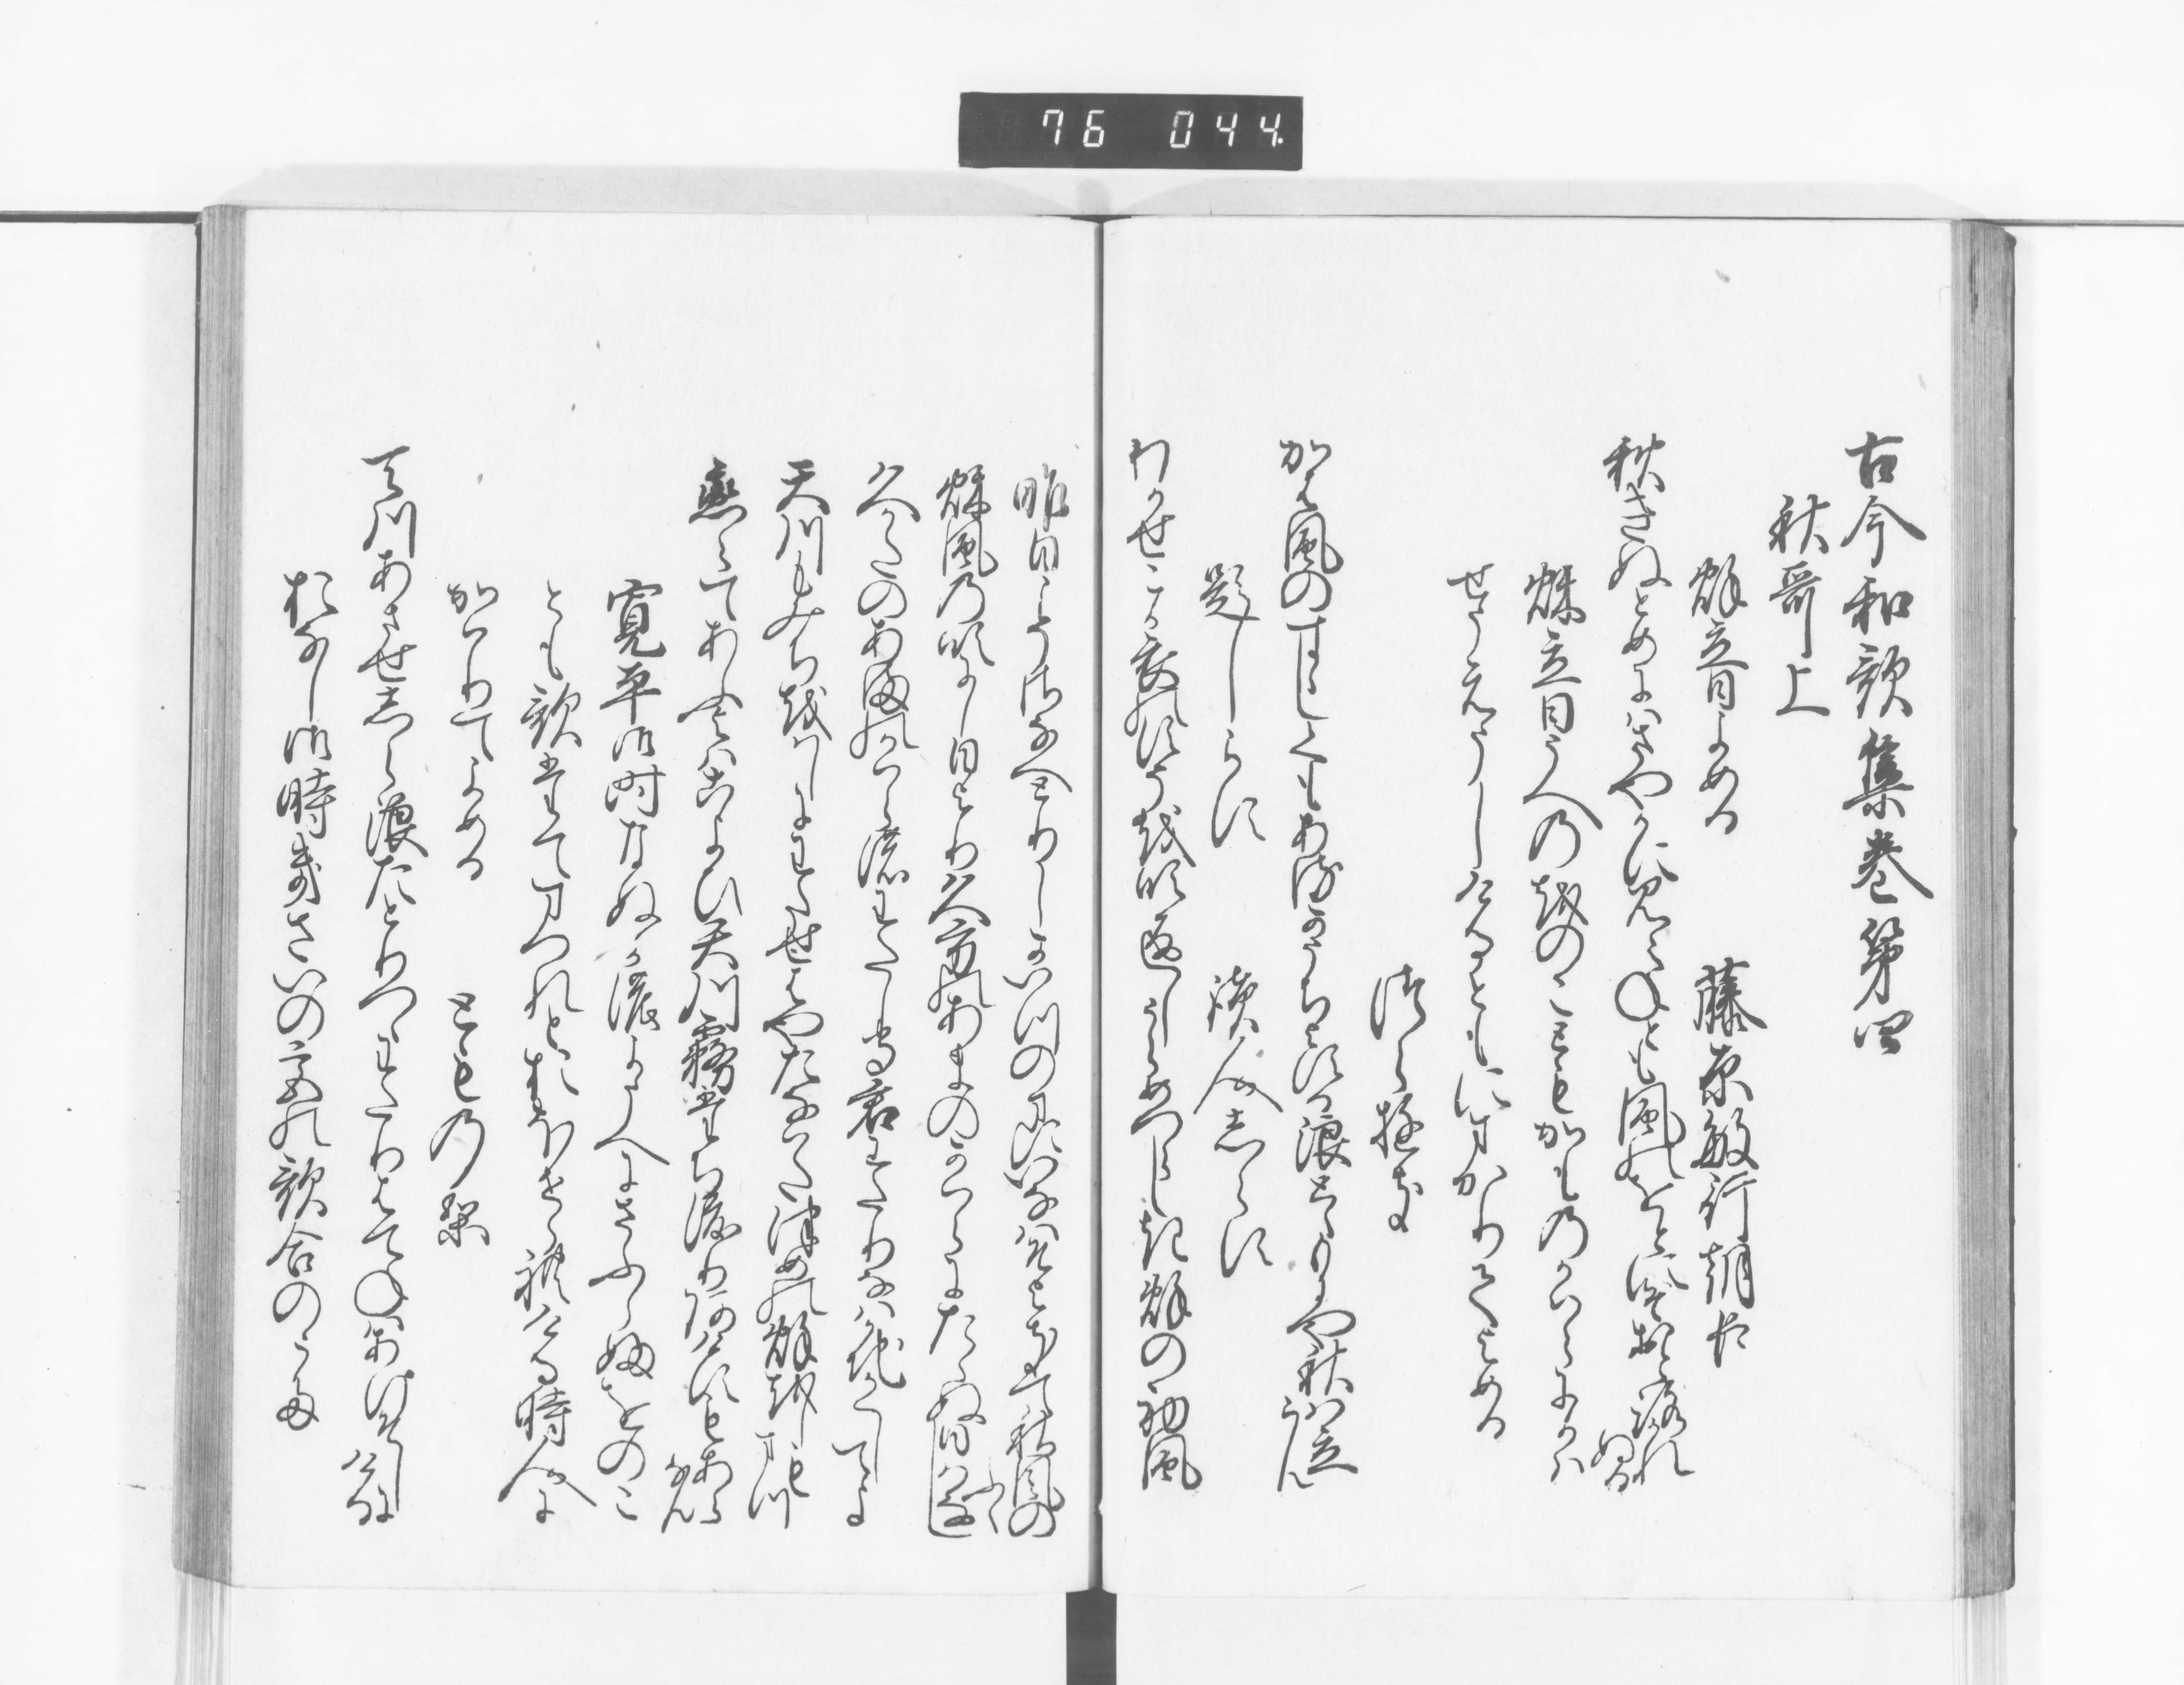 76 044
古今和歌集巻第四
秋哥上
秋立日よめる
藤原敏行朝臣
秋きぬとめにはさやかに見えねとも風のをとにそおとろかれ
ぬる
秋立日うへのおのこともかものかはらにかは
せうえうしけるともにまかりてよめる
つらゆき
かは風のすゝしくもあるかうちよする浪とゝもにや秋は立
らん
題しらす
読人しらす
わかせこか衣のすそを吹返しうらめつらしき秋の初風
昨日こそさなへとりしかいつのまにいなはそよきて秋風の
ふく
秋風の吹にし日より久方のあまのかはらにたゝぬ日はなし
久かたのあまのかはらの渡もり君わたりなはかちかくしてよ
天川もみちをはしにわたせはやたなはたつめの秋をしもまつ
恋々てあふ夜はこよひ天川霧立ち渡りあけすもあら
なん
寛平御時なぬかの夜うへにさふらふをのこ
とも歌たてまつれとおほせられける時人に
かはりてよめる
とものり
天川あさせしら浪たとりつゝわたりはてねはあけそしに
ける
おなし御時きさいの宮の歌合のうた